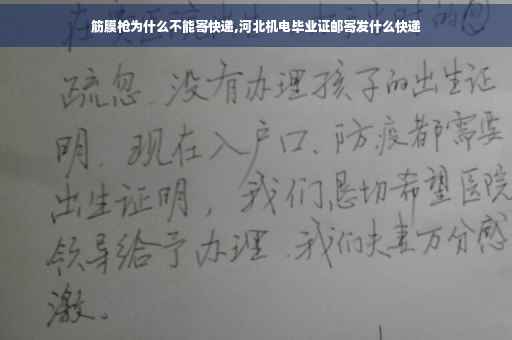 筋膜枪为什么不能寄快递,河北机电毕业证邮寄发什么快递
疏忽、没有办理孩子的出生证
明、现在入户口、防疫都需要
出生证明，我们恳切希望医院
领导给予办理、我们夫妻万分感
激。